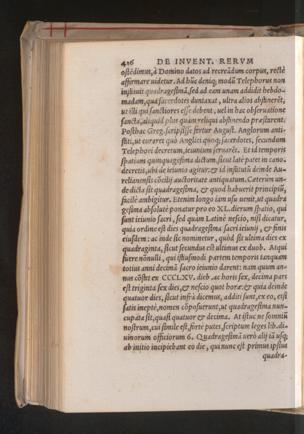 426 DE INVENT. RERVM
ostēdimus, à Domino datos ad recreādum corpus, rectè
affirmare videtur. Ad hūc deniq; modū Telephorus non
instituit quadragesimā, sed ad eam unam addidit hebdo-
madam, quā sacerdotes duntaxat, ultra alios abstinerēt,
ut illi qui sanctiores esse debent, vel in hac obseruatione
sancta, aliquid plus quàm reliqui abstinendo præstarent.
Posthac Greg. scripsisse fertur August. Anglorum anti-
stiti, ut curaret quo Anglici quoq; sacerdotes, secundum
Telephori decretum, ieiunium seruarēt. Et id temporis
spatium quinquagesima dictum, sicut latè patet in cano.
decretis, ubi de ieiunio agitur: & id institutū deinde Au-
relianensis cōcilij auctoritate antiquatum. Cæterùm un-
de dicta sit quadragesima, & quod habuerit principiū,
facilè ambigitur. Etenim longo iam usu uenit, ut quadra
gesima absolutè ponatur pro eo XL. dierum spatio, qui
sunt ieiunio sacri, sed quam Latinè nescio, nisi dicatur,
quia ordine est dies quadragesima sacri ieiunij, & finis
eiusdem: ac inde sic nominetur, quòd sit ultima dies ex
quadraginta, sicut secundus est ultimus ex duob. Atqui
fuere nōnulli, qui istiusmodi partem temporis tanquam
totius anni decimā sacro ieiunio darent: nam quum an-
nus cōstet ex CCCLXV. dieb. ac horis sex, decima pars
est triginta sex dies, & nescio quot horæ: & quia deinde
quatuor dies, sicut infrà dicemus, additi sunt, ex eo, est
satis ineptè, nomen cōposuerunt, ut quadragesima nun-
cupata sit, quasi quatuor & decima. At istuc ne somniū
nostrum, cui simile est, fortè putes scriptum leges lib. di-
uinorum officiorum 6. Quadragesimā verò alij tā usq;
ab initio incipiebant eo die, qui nunc est primus ipsius
quadra-